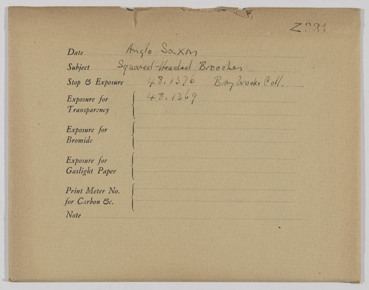 Z
Date Anglo Saxon
Subject Squared-Headed Brooches
Stop & Exposure 48.1370 Braybrooke Coll.
Exposure for 48.1369
Transparency
Exposure for
Bromide
Exposure for
Gaslight Paper
Print Meter No.
for Carbon &c.
Note